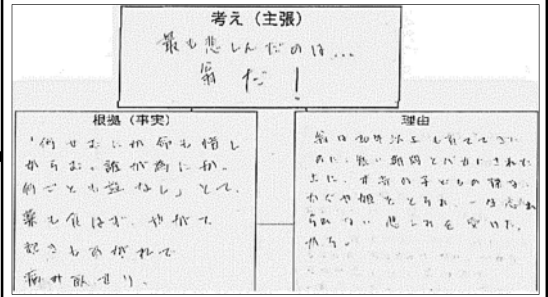 考え（主張）
最も悲しんだのは…
翁だ！
根拠（事実）
「何せむにか命も惜し
からむ。誰が為にか。
何ごとも益なし」とて、
薬も食はず。やがて
起きもあがれで
病み臥せり。
理由
翁は20年以上も育ててきた
のに、
上に、
かぐや姫をとられ、一生忘れ
られない悲しみを受けた
から。